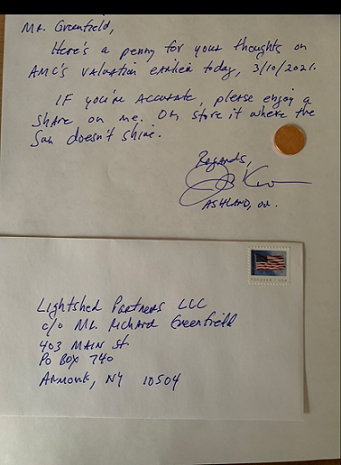 Mr. Greenfield,
Here's a penny for your thoughts on
AMC's valuation earlier today, 3/10/2021.
If you're accurate, please enjoy a
share on me. Or store it where the
Sun doesn't shine.
Regards,
Ashland, OR.
Lightshed Partners LLC
c/o Mr. Richard Greenfield
403 Main St.
PO Box 740
Armonk, NY 10504